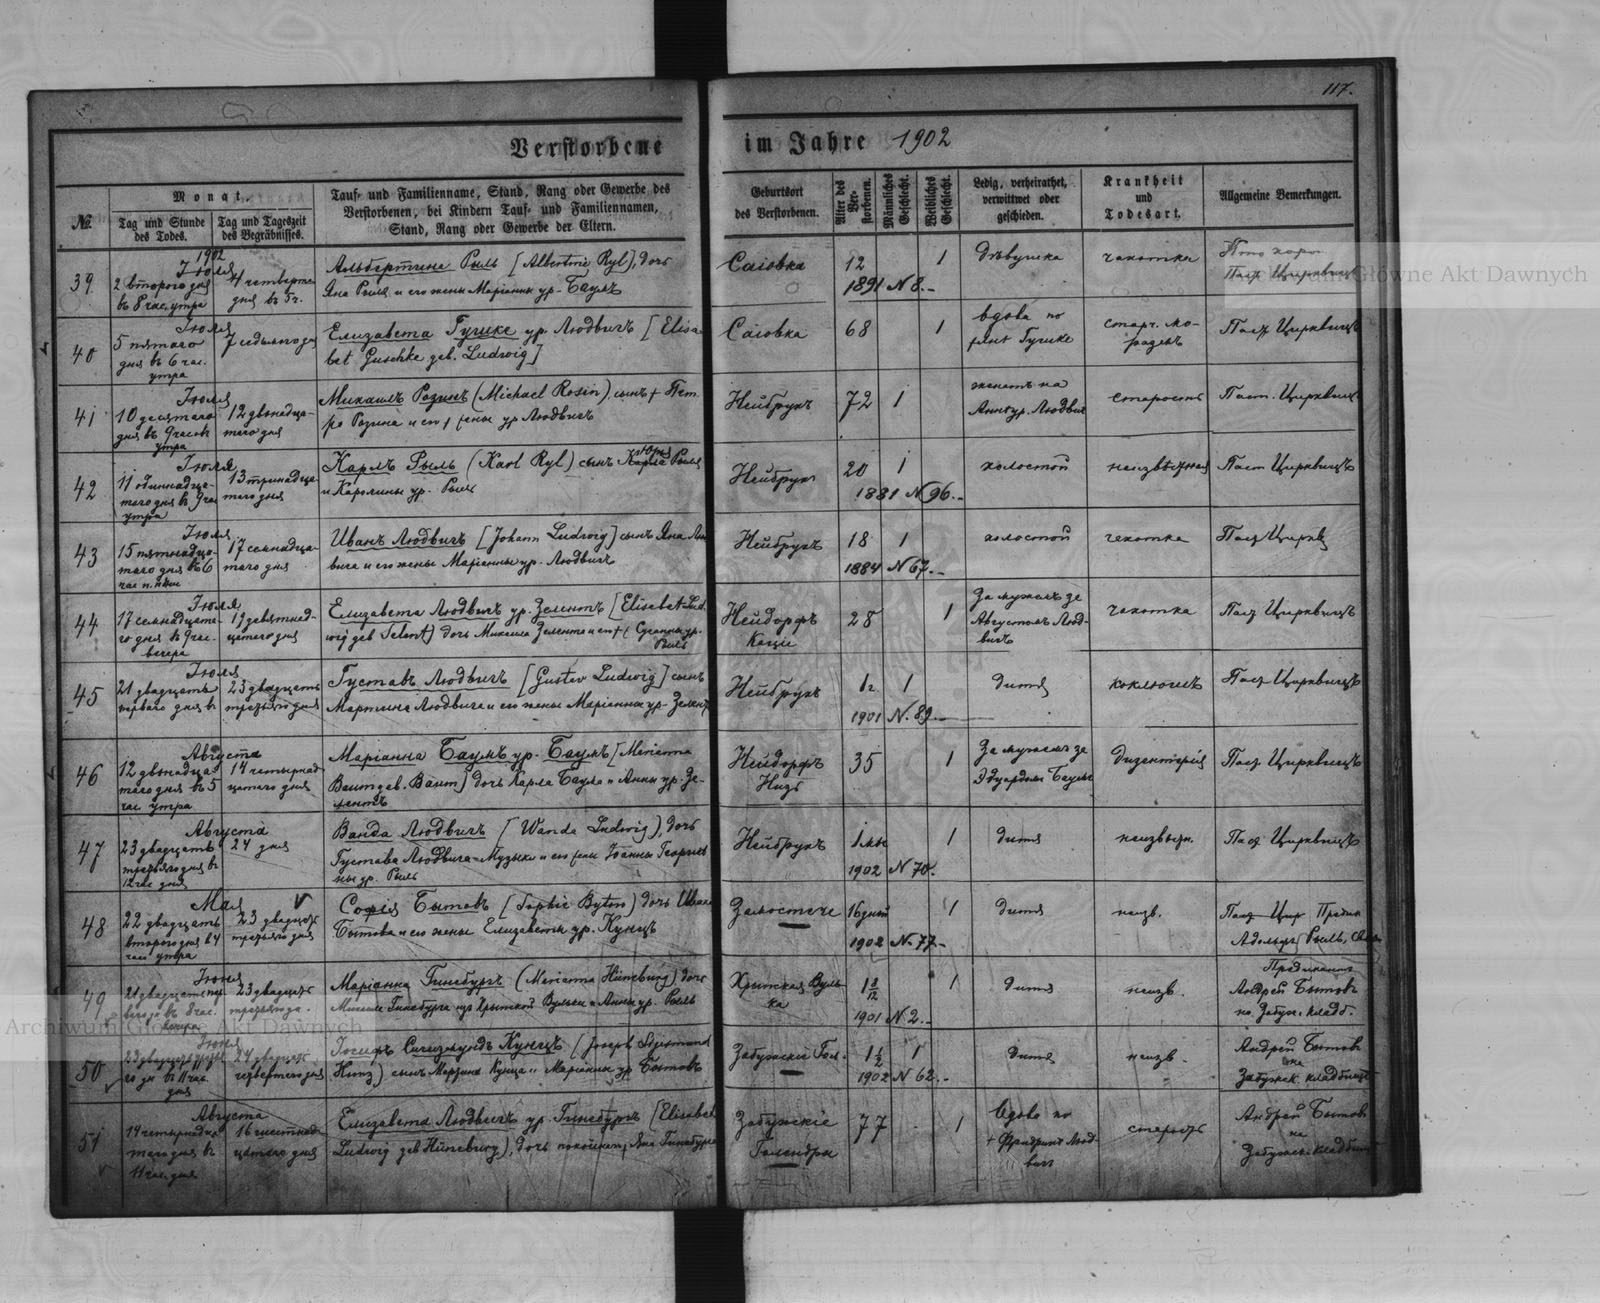 117.
Verstorbene im Jahre 1902
№.
Monat.
Tag und Stunde des Todes.
Tag und Tageszeit des Begräbnisses.
Tauf- und Familienname, Stand, Rang oder Gewerbe des
Verstorbenen, bei Kindern Tauf- und Familiennamen,
Stand, Rang oder Gewerbe der Eltern.
Geburtsort
des Verstorbenen.
Alter des Verstorbenen.
Männliches Geschlecht.
Weibliches Geschlecht.
Ledig, verheirathet,
verwittwet oder
geschieden.
Krankheit
und
Todesart.
Allgemeine Bemerkungen.
1902
39 Іюля
2 второго дня
въ 8 час. утра
4 четверта
дня въ 5 ч.
Альбертина Рыль [Albertine Ryl], дочь
Яна Рыля и его жены Маріанны ур. Баумъ
Саіовка 12 1 дѣвушка чахотка
1891 N 8.-
Паст Цирквицъ
40 Іюля
5 пятаго
дня въ 6 час.
утра
7 седьмого дня
Елизавета Гушке ур. Людвигъ [Elisa
bet Guschke geb. Ludwig]
Саіовка 68 1 вдова по
Гушке
Паст Цирквицъ
41 Іюля
10 десятаго
дня въ 9 часовъ
утра
12 двѣнадца-
таго дня
Михаилъ Розинъ (Michael Rosin), сынъ + Пет
ра Розина и его жены ур Людвигъ
Нейбрухъ 72 1 женатъ на
Аннѣ ур. Людвигъ
старость Паст. Цирквицъ
42 Іюля
11 одиннадца-
таго дня въ 9 час
утра
13 тринадца
таго дня
Карлъ Рыль (Karl Ryl) сынъ Карла Рыля
и Каролины ур. Рыль
Нейбрухъ 20 1 холостой неизвѣстная Паст Цирквицъ
1881 N 96.-
43 Іюля
15 пятнадца-
таго дня въ 6
час
17 семнадца-
таго дня
Иванъ Людвигъ [Johann Ludwig] сынъ Яна Люд
вига и его жены Маріанны ур. Людвигъ
Нейбрухъ 18 1 холостой чахотка Паст Циркв
1884 N 67.-
44 Іюля
17 семнадцата-
го дня въ 9 час.
вечера
19 девятнад-
цатаго дня
Елизавета Людвигъ ур. Зелентъ [Elisabet Lud
wig geb Selent) дочь Михаила Зелента и его + Сусанны ур.
Рыль
Нейдорфъ 28 1 За мужемъ за
Августомъ Люд-
вигъ
чахотка Паст Цирквицъ
45 Іюля
21 двадцать
перваго дня въ
23 двадцать
третьяго дня
Густавъ Людвигъ [Gustav Ludwig] сынъ
Мартина Людвига и его жены Маріанны ур. Зелентъ
Нейбрухъ 1г 1 дитя коклюшъ Паст Цирквицъ
1901 N. 89.-
46 Августа
12 двѣнадца
таго дня въ 5
час утра
14 четырнад
цатаго дня
Маріанна Баумъ ур. Баумъ [Marianna
Baum geb. Baum] дочь Карла Баума и Анны ур. Зе-
лентъ
Нейдорфъ 35 1 За мужемъ за
Эдуардомъ Баумъ
дизентерія Паст Цирквицъ
47 Августа
23 двадцать
третьяго дня въ
12 час дня
24 дня
Ванда Людвигъ [Wanda Ludwig), дочь
Густава Людвига-Музыки и его жены Іоанны Георгиев
ны ур. Рыль
Нейбрухъ 1 мѣс 1 дитя неизвѣстн. Паст Цирквицъ
1902 N 70.-
48 Мая
22 двадцать
второго дня въ 4
час утра
23 двадцать
третьяго дня
Софія Бытовъ [Sophie Bytow) дочь Ивана
Бытова и его жены Елизаветы ур. Кунцъ
Замостече 16 дней 1 дитя неизв.
1902 N. 77-
Паст Цир
Адольфъ Рыль
49 Іюня
21 двадцать пер
ваго дн въ 8 час.
вечера
23 двадцать
третьяго дн.
Маріанна Гинебургъ (Marianna Hüneburg) дочь
Михаила Гинебурга изъ Хрытской Вульки и Анны ур. Рыль
Хрытская Вуль-
ка
1 8/12 1 дитя неизв.
1901 N 2.-
Андрей Бытовъ
на Забуж. кладб.
50 Іюля
въ 11 час.
дня
24 двадцать
четвертаго дня
Іосифъ Сигизмундъ Кунцъ [Joseph Sigismund
Kunz) сынъ Мартина Кунца и Маріанны ур Бытовъ
Забужскіе Гол. 1 1/2 1 дитя неизв.
1902 N 62.-
Андрей Бытовъ
на
Забужск. кладбищѣ
51 Августа
14 четырнадца
таго дня въ
11 час. дня
16 шестнад
цатаго дня
Елизавета Людвигъ ур. Гинебургъ [Elisabet
Ludwig geb Hüneburg), дочь покойнаго Яна Гинебурга
Забужскіе
Голендры
77 1 вдова по
+ Фридрихѣ Люд-
вигъ
старость
Андрей Бытовъ
на
Забужск. кладбищѣ
Archiwum Główne Akt Dawnych
Archiwum Główne Akt Dawnych